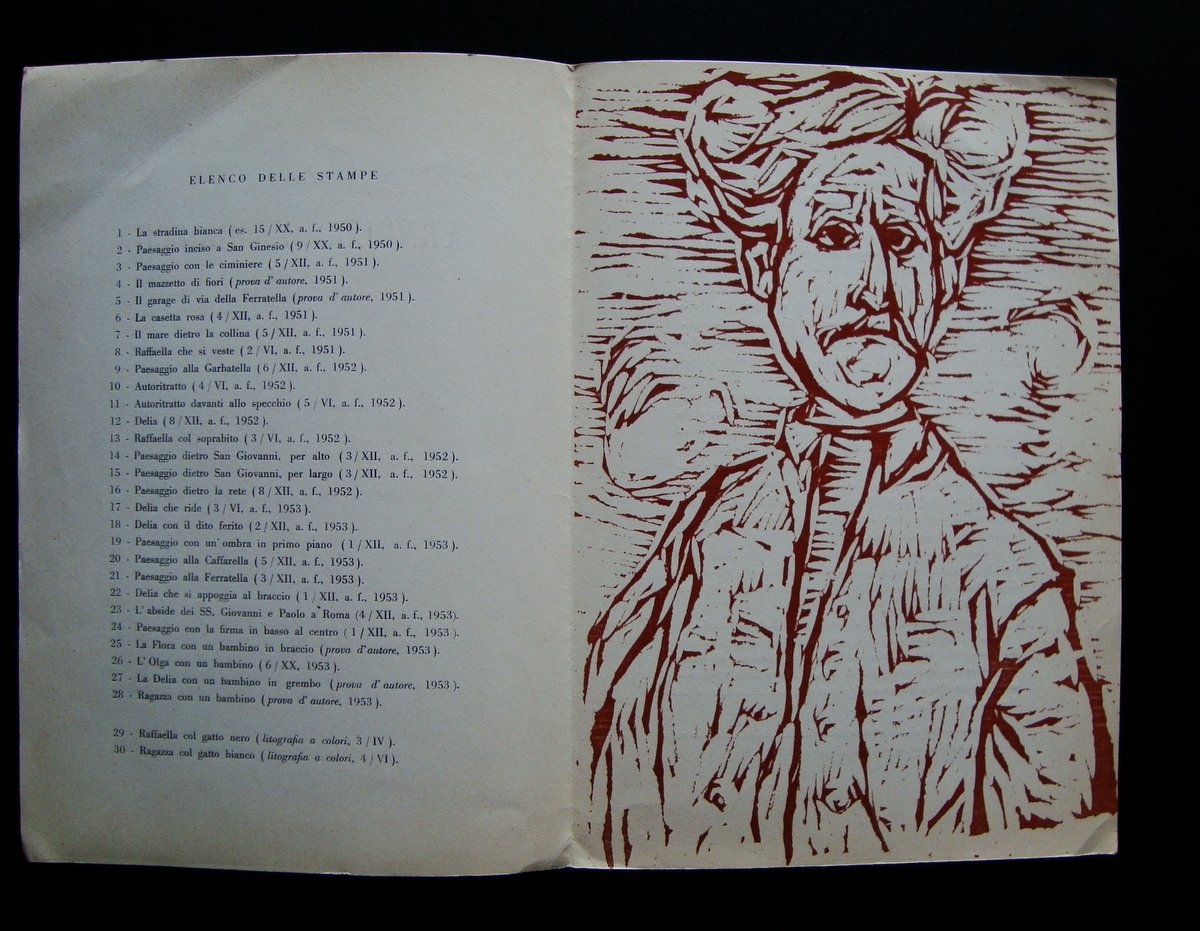 ELENCO DELLE STAMPE
1 - La stradina bianca ( es. 15 / XX, a. f., 1950 ).
2 - Paesaggio inciso a San Ginesio ( 9 / XX, a. f., 1950 ).
3 - Paesaggio con le ciminiere ( 5 / XII, a. f., 1951 ).
4 - Il mazzetto di fiori ( prova d' autore, 1951 ).
5 - Il garage di via della Ferratella ( prova d' autore, 1951 ).
6 - La casetta rosa ( 4 / XII, a. f., 1951 ).
7 - Il mare dietro la collina ( 5 / XII, a. f., 1951 ).
8 - Raffaella che si veste ( 2 / VI, a. f., 1951 ).
9 - Paesaggio alla Garbatella ( 6 / XII, a. f., 1952 ).
10 - Autoritratto ( 4 / VI, a. f., 1952 ).
11 - Autoritratto davanti allo specchio ( 5 / VI, a. f., 1952 ).
12 - Delia ( 8 / XII, a. f., 1952 ).
13 - Raffaella col soprabito ( 3 / VI, a. f., 1952 ).
14 - Paesaggio dietro San Giovanni, per alto ( 3 / XII, a. f., 1952 ).
15 - Paesaggio dietro San Giovanni, per largo ( 3 / XII, a. f., 1952 ).
16 - Paesaggio dietro la rete ( 8 / XII, a. f., 1952 ).
17 - Delia che ride ( 3 / VI, a. f., 1953 ).
18 - Delia con il dito ferito ( 2 / XII, a. f., 1953 ).
19 - Paesaggio con un' ombra in primo piano ( 1 / XII, a. f., 1953 ).
20 - Paesaggio alla Caffarella ( 5 / XII, a. f., 1953 ).
21 - Paesaggio alla Ferratella ( 3 / XII, a. f., 1953 ).
22 - Delia che si appoggia al braccio ( 1 / XII, a. f., 1953 ).
23 - L' abside dei SS. Giovanni e Paolo a Roma ( 4 / XII, a. f., 1953).
24 - Paesaggio con la firma in basso al centro ( 1 / XII, a. f., 1953 ).
25 - La Flora con un bambino in braccio ( prova d' autore, 1953 ).
26 - L' Olga con un bambino ( 6 / XX, 1953 ).
27 - La Delia con un bambino in grembo ( prova d' autore, 1953 ).
28 - Ragazza con un bambino ( prova d' autore, 1953 ).
29 - Raffaella col gatto nero ( litografia a colori, 3 / IV ).
30 - Ragazza col gatto bianco ( litografia a colori, 4 / VI ).